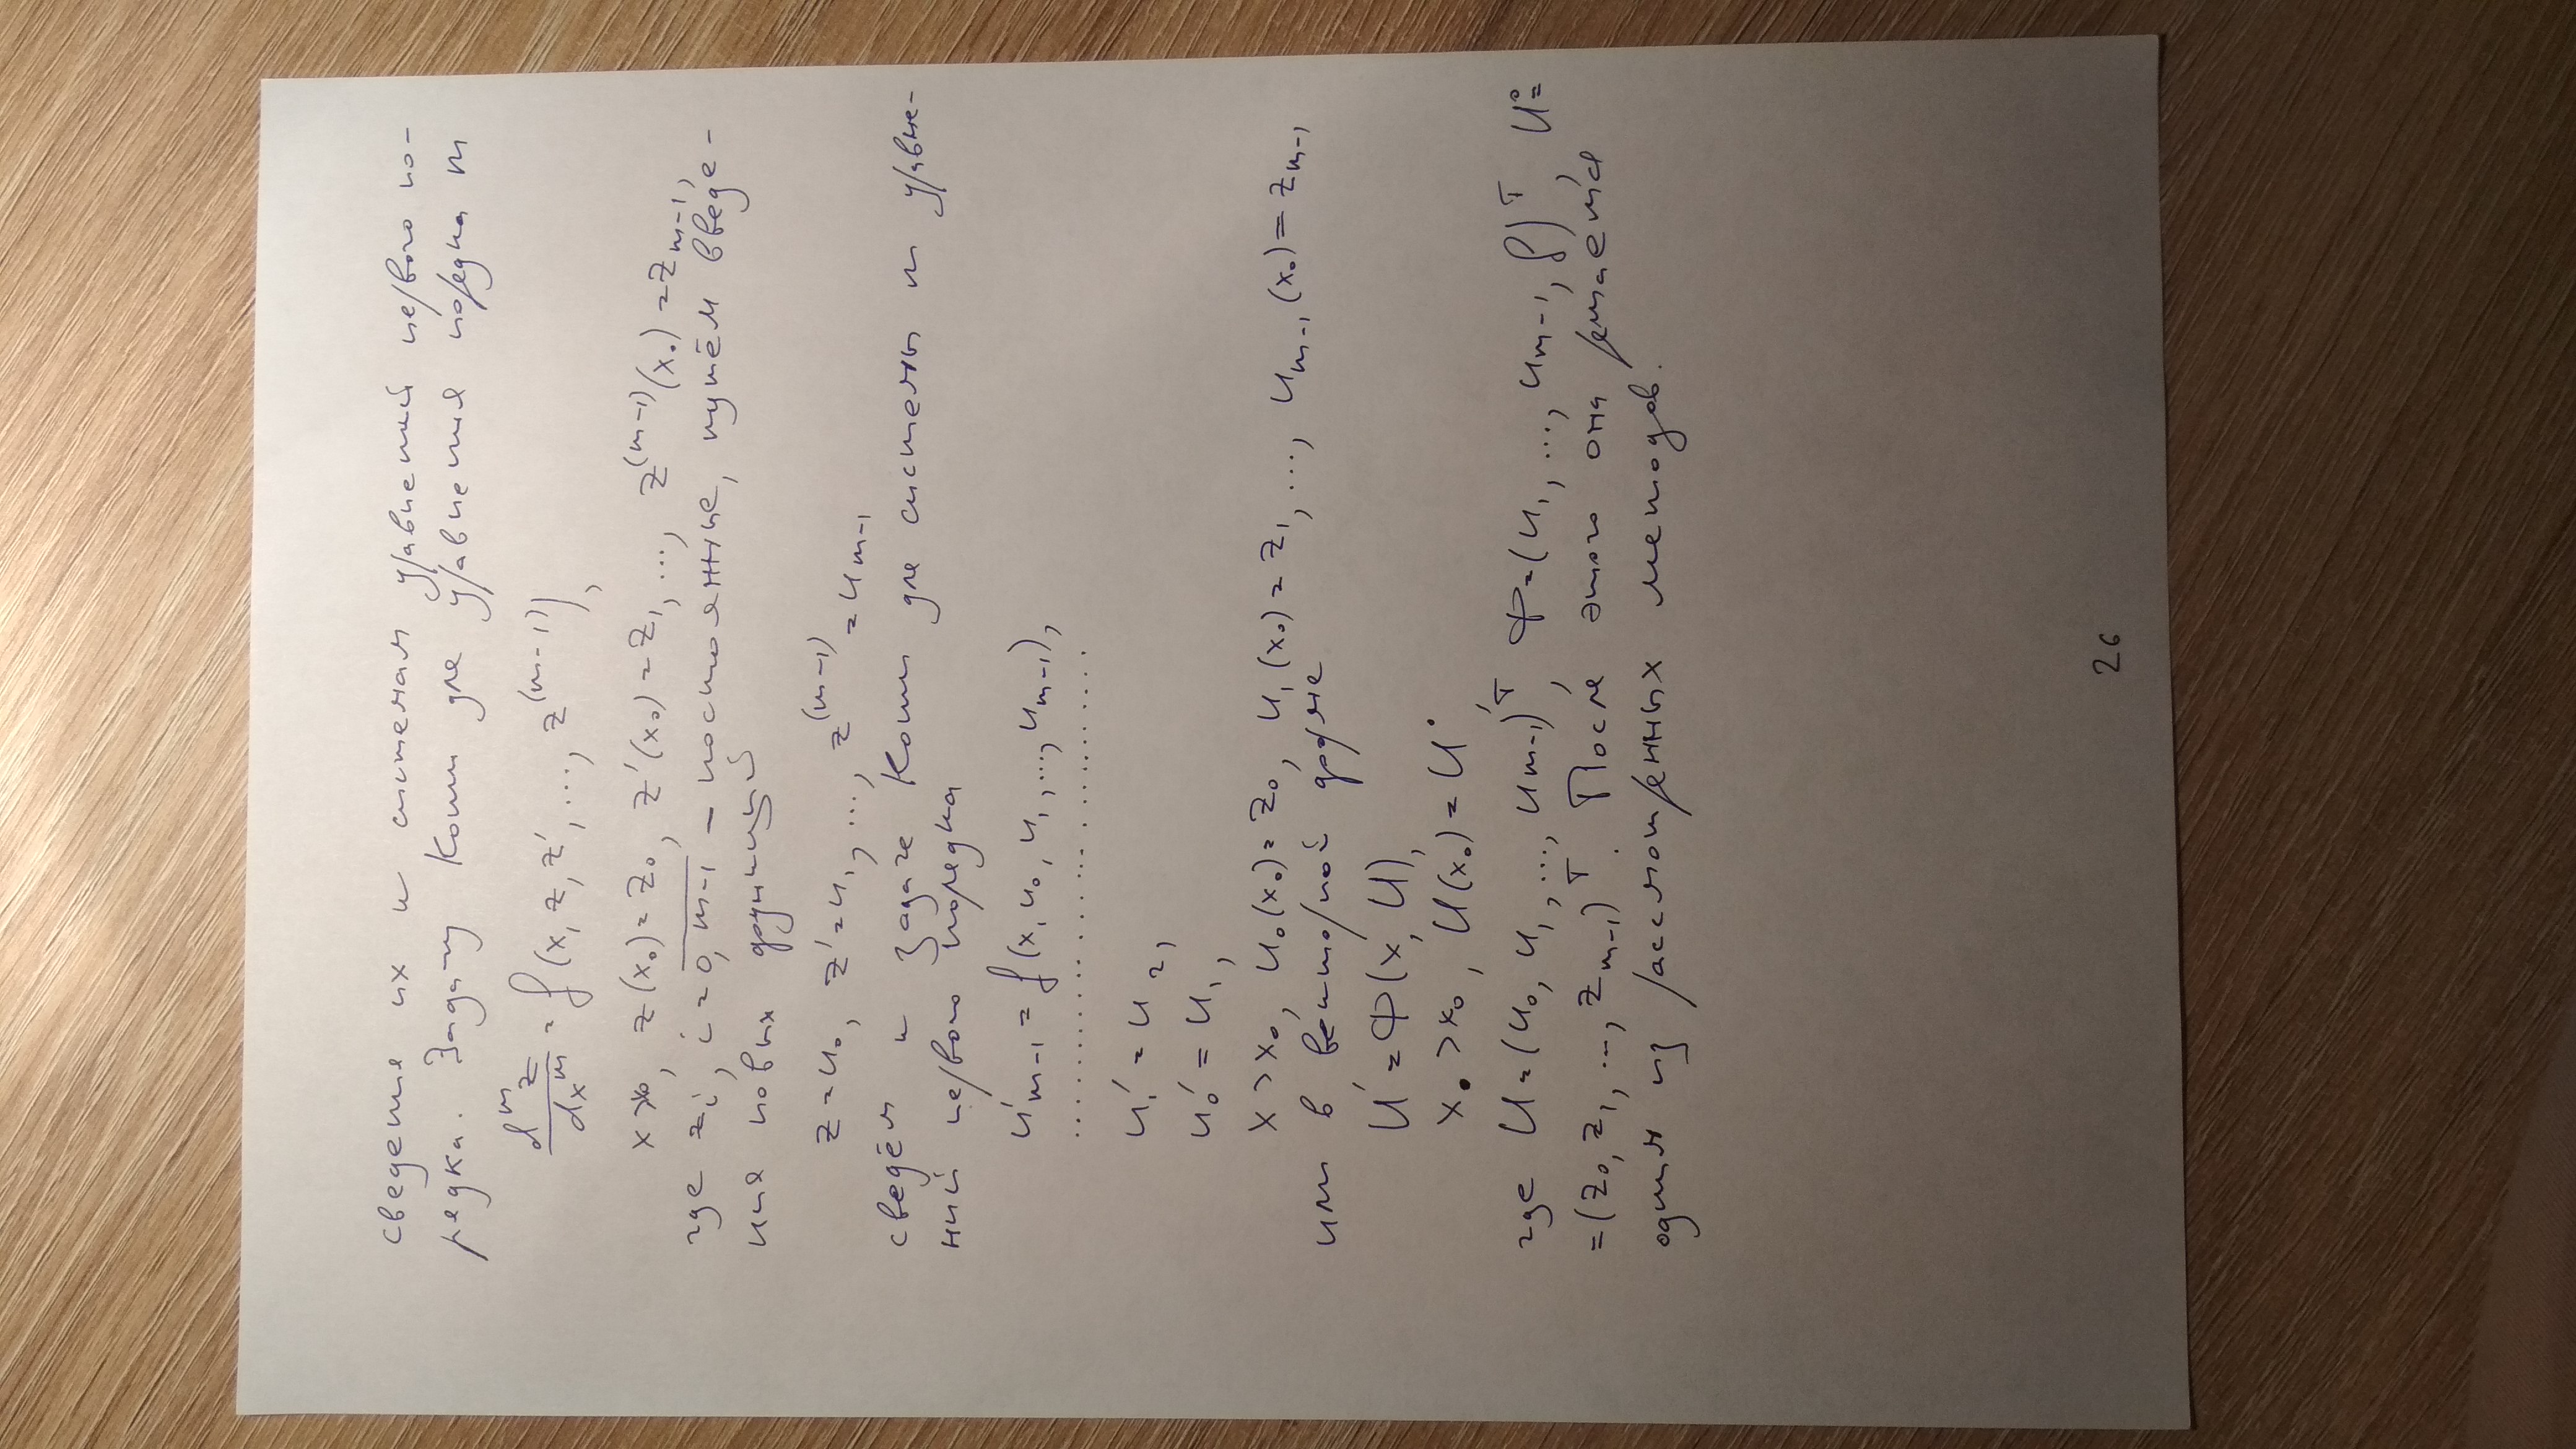 сведения их к системам уравнений первого по-
рядка. Задачу Коши для уравнения порядка m
d^m z / dx^m = f(x, z, z', ..., z^(m-1)),
x > x₀, z(x₀) = z₀, z'(x₀) = z₁, ..., z^(m-1)(x₀) = z_{m-1},
где z_i, i = \overline{0, m-1} – постоянные, путём введе-
ния новых функций
z = u₀, z' = u₁, ..., z^(m-1) = u_{m-1}
сведём к задаче Коши для системы m уравне-
ний первого порядка
u'_{m-1} = f(x, u₀, u₁, ..., u_{m-1}),
. . . . . . . . . . . . . . . . . . . . . . . .
u₁' = u₂,
u₀' = u₁,
x > x₀, u₀(x₀) = z₀, u₁(x₀) = z₁, ..., u_{m-1}(x₀) = z_{m-1},
или в векторной форме
U' = Φ(x, U),
x₀ > x₀, U(x₀) = U⁰,
где U = (u₀, u₁, ..., u_{m-1})^T, Φ = (u₁, ..., u_{m-1}, f)^T, U⁰ =
= (z₀, z₁, ..., z_{m-1})^T. После этого она решается
одним из рассмотренных методов.
26